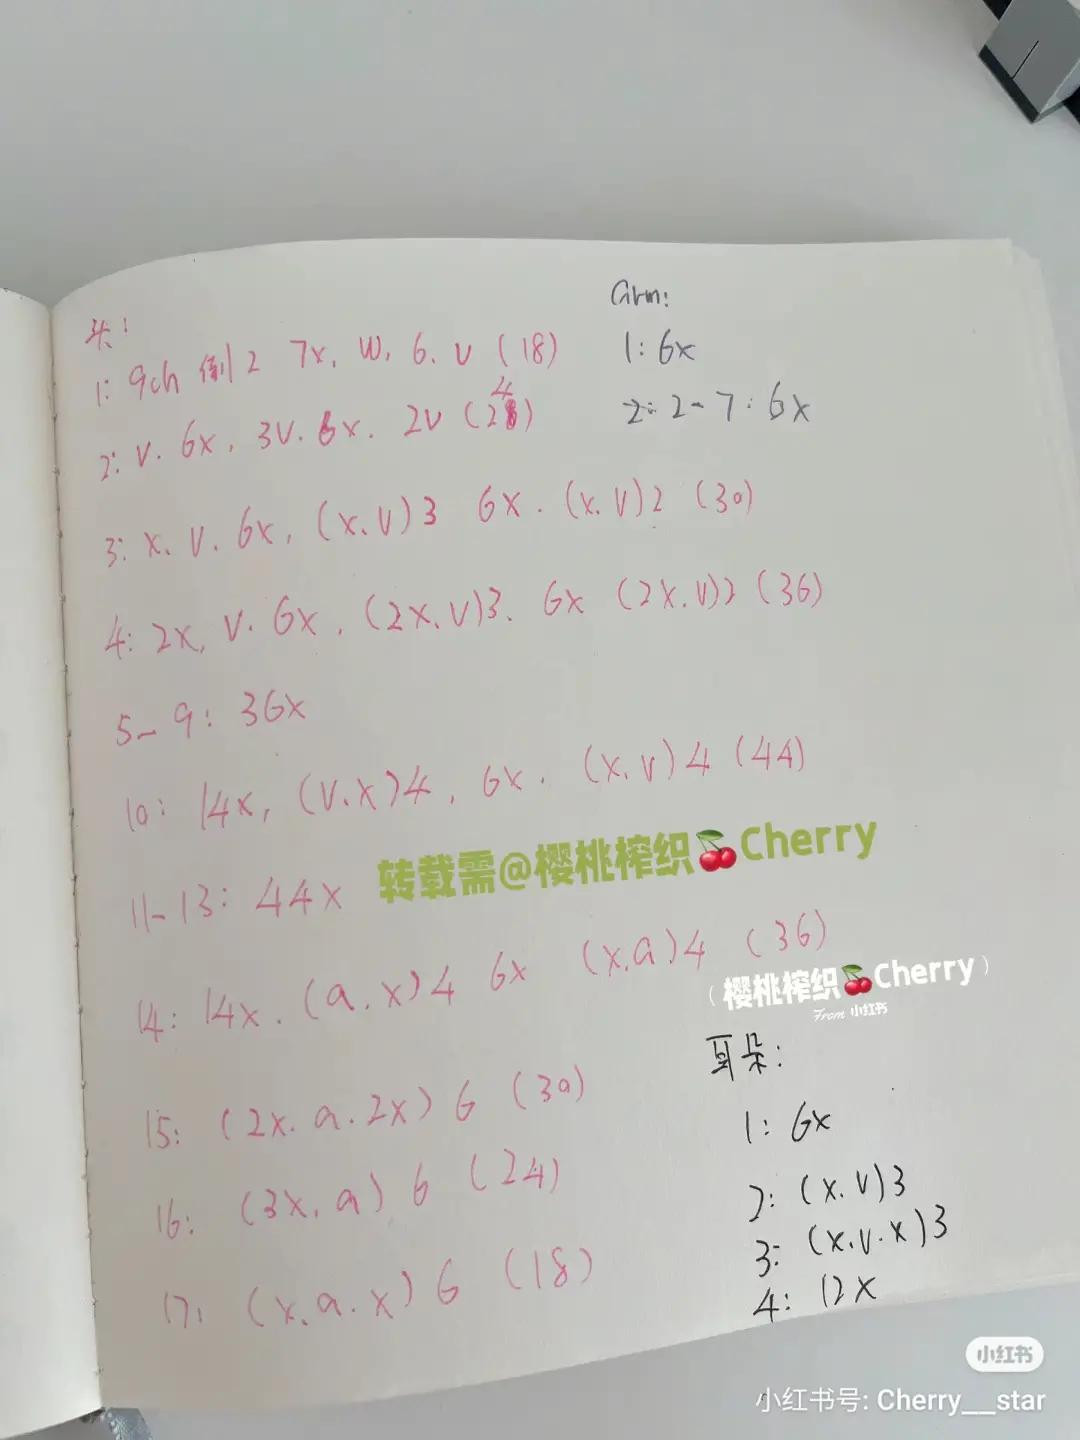 头:
1: 9ch 倒2 7x, W, 6. v (18)
2: v. 6x, 3v. 6x. 2v (24)
3: x. v. 6x, (x.v)3 6x. (x.v)2 (30)
4: 2x, v. 6x, (2x.v)3. 6x (2x.v)2 (36)
5-9: 36x
10: 14x, (v.x)4, 6x. (x.v)4 (44)
11-13: 44x
14: 14x. (a.x)4 6x (x.a)4 (36)
15: (2x. a. 2x) 6 (30)
16: (3x. a) 6 (24)
17: (x. a. x) 6 (18)
arm:
1: 6x
2: 2-7: 6x
转载需@樱桃榨织🍒Cherry
(樱桃榨织🍒Cherry)
From 小红书
耳朵:
1: 6x
2: (x.v)3
3: (x.v.x)3
4: 12x
小红书
小红书号: Cherry__star